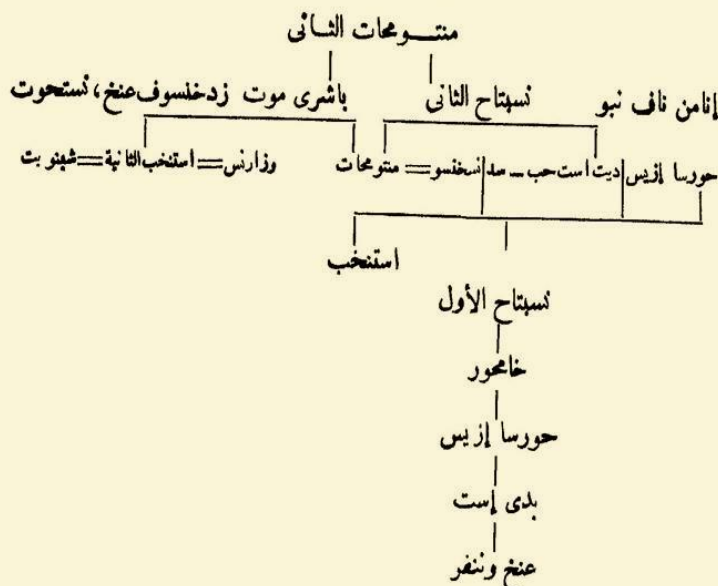 منتومحات الثانى
إنامن ناف نبو نسبتاح الثانى باشرى موت زدخنسوف عنخ، نستحوت
حورسا إزيس ديت است حب ــ سد نسخنسو = منتومحات وزارنس = استنخب الثانية = شبنوبت
استنخب
نسبتاح الأول
خامحور
حورسا إزيس
بدى إست
عنخ وننفر